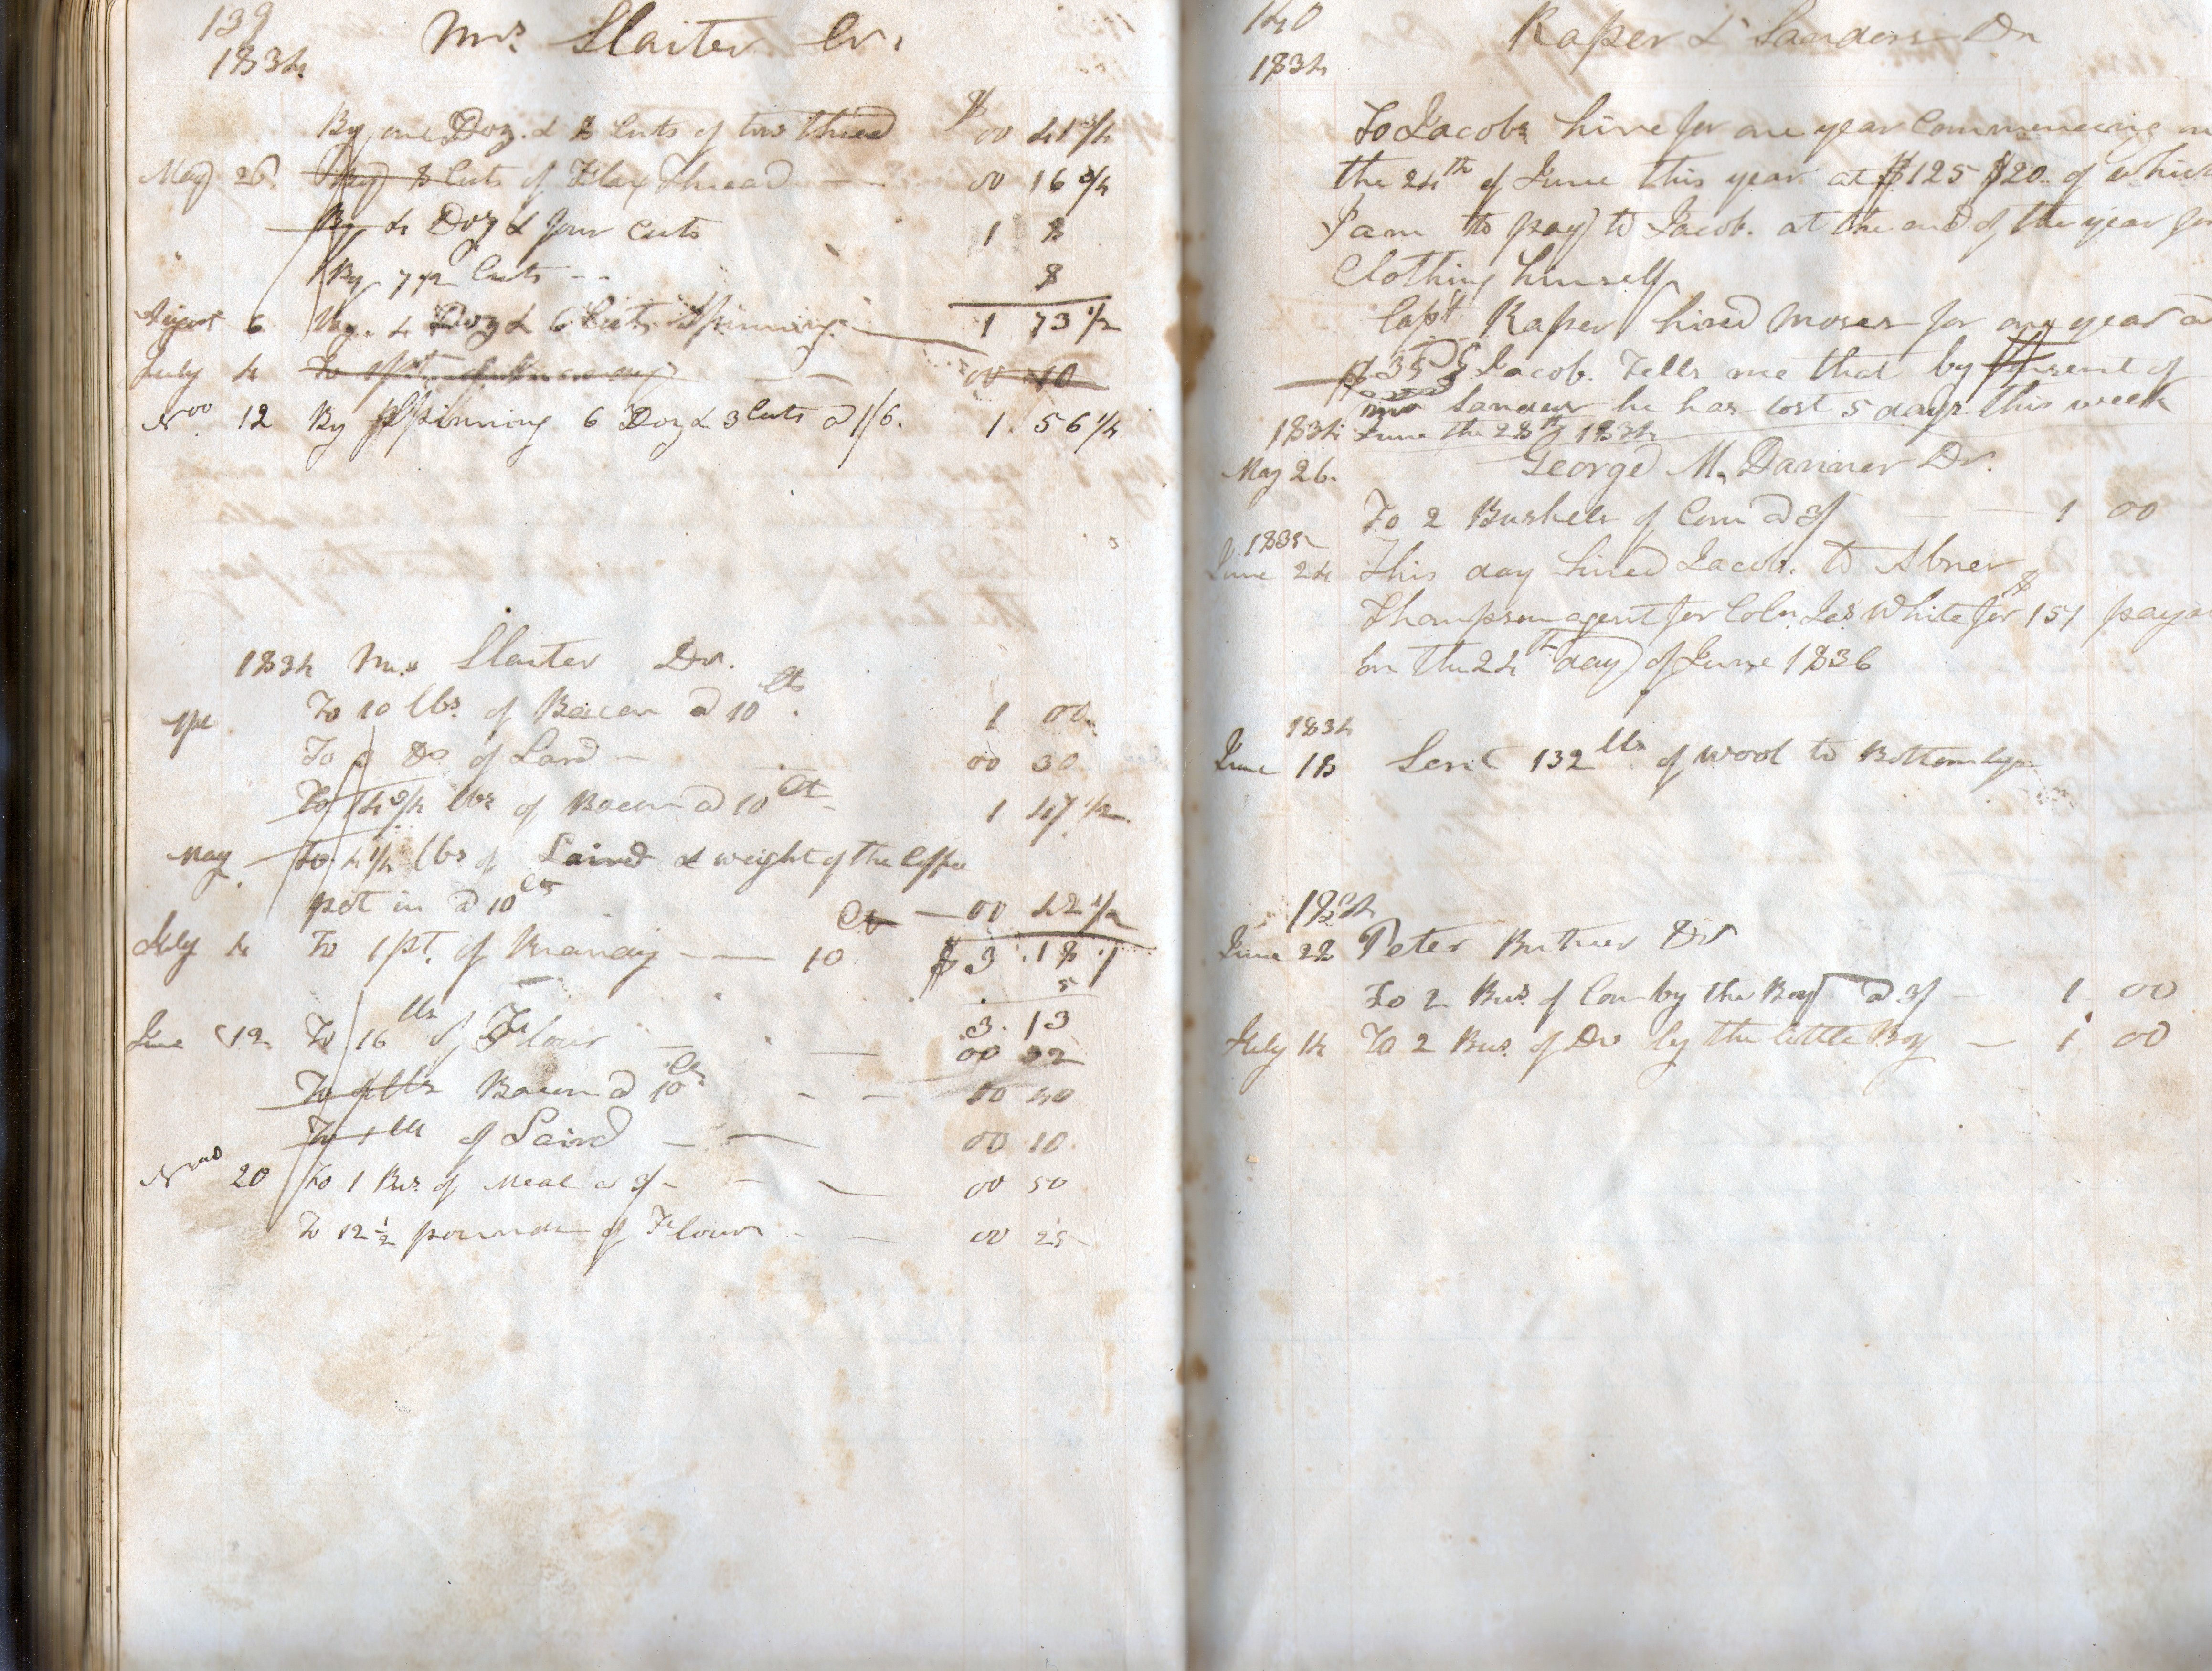 139
1834
Mrs Slaiter Cr.
By one Doz. & 8 Cuts of tow thread $ 00 41 3/4
May 26. By 8 Cuts of Flax Thread 00 16 3/4
By 4 Doz & four Cuts 1 8
By 7 1/2 Cuts 8
August 6 By 4 Doz & 6 Cuts Spinning 1 73 1/2
July 4 00 10
Nov 12 By Spinning 6 Doz & 3 Cuts @ 1/6. 1. 56 1/4
1834 Mrs Slaiter Dr.
To 10 lbs. of Bacon @ 10 Cts. 1 00
To 3 Do of Lard 00 30
To 14 3/4 lbs of Bacon @ 10 Ct 1 47 1/2
May To 4 1/4 lbs of Laird & weight of the Coffee
pot in @ 10 Cts 00 42 1/2
July 4 To 1 pt. of Brandy 10 Ct $3.18
5
3.13
June 12 To 16 lbs of Flour 00 32
To 4 lbs Bacon @ 10 Cts 00 40
To 1 lb of Laird 00 10
Nov 20 To 1 Bus. of Meal @ 3/ 00 50
To 12 1/2 pounds of Flour 00 25
140
1834
Raper & Sanders Dr
To Jacobs hire for one year Commencing on
the 24th of June this year at $125 $20 of which
I am to pay to Jacob. at the end of the year for
Clothing himself
Capt Raper hired Moses for one year at
$35 Jacob. Tells me that by consent of
Sanders he has lost 5 days this week
1834 June the 28th 1834
May 26. George M. Danner Dr.
To 2 Bushels of Corn @ 3/ 1 00
1835
June 24 This day hired Jacob. to Abner
Thompson agent for Coln. Jas White for $151
on the 24th day of June 1836
1834
June 18 Sent 132 lbs. of wool to Bottomleys
1834
June 22 Peter Dr
To 2 Bus. of Corn by the Boy @ 3/ 1 00
July 14 To 2 Bus. of Do by the little Boy 1 00